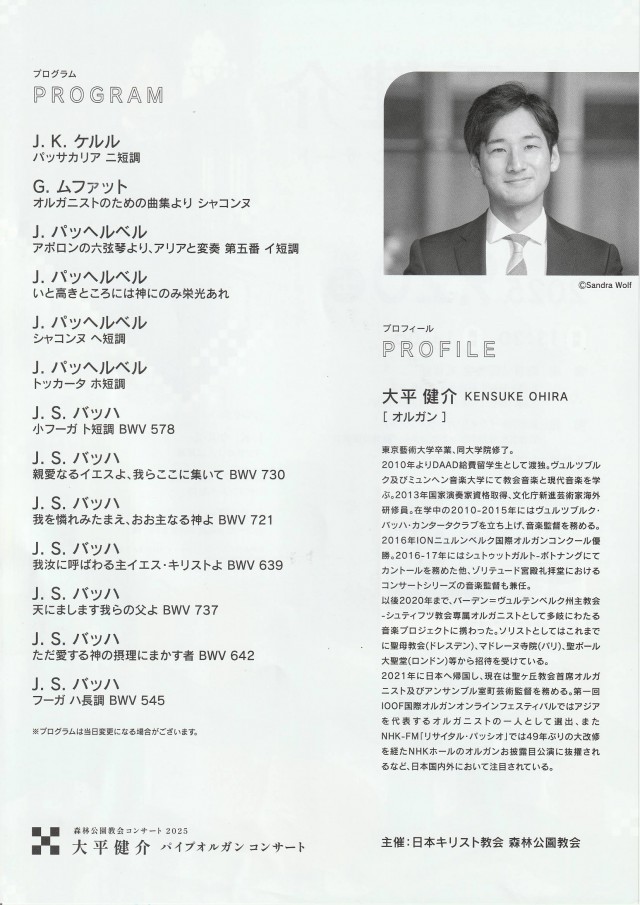 プログラム
PROGRAM
J. K. ケルル
パッサカリア 二短調
G. ムファット
オルガニストのための曲集より シャコンヌ
J. パッヘルベル
アポロンの六弦琴より、アリアと変奏 第五番 イ短調
J. パッヘルベル
いと高きところには神にのみ栄光あれ
J. パッヘルベル
シャコンヌ ヘ短調
J. パッヘルベル
トッカータ ホ短調
J. S. バッハ
小フーガ ト短調 BWV 578
J. S. バッハ
親愛なるイエスよ、我らここに集いて BWV 730
J. S. バッハ
我を憐れみたまえ、おお主なる神よ BWV 721
J. S. バッハ
我汝に呼ばわる主イエス・キリストよ BWV 639
J. S. バッハ
天にまします我らの父よ BWV 737
J. S. バッハ
ただ愛する神の摂理にまかす者 BWV 642
J. S. バッハ
フーガ ハ長調 BWV 545
※プログラムは当日変更になる場合がございます。
©Sandra Wolf
プロフィール
PROFILE
大平 健介 KENSUKE OHIRA
[ オルガン ]
東京藝術大学卒業、同大学院修了。
2010年よりDAAD給費留学生として渡独。ヴュルツブル
ク及びミュンヘン音楽大学にて教会音楽と現代音楽を学
ぶ。2013年国家演奏家資格取得、文化庁新進芸術家海外
研修員。在学中の2010-2015年にはヴュルツブルク・
バッハ・カンタータクラブを立ち上げ、音楽監督を務める。
2016年IONニュルンベルク国際オルガンコンクール優
勝。2016-17年にはシュトゥットガルト-ボトナングにて
カントールを務めた他、ゾリテュード宮殿礼拝堂における
コンサートシリーズの音楽監督も兼任。
以後2020年まで、バーデン＝ヴュルテンベルク州主教会
-シュティフツ教会専属オルガニストとして多岐にわたる
音楽プロジェクトに携わった。ソリストとしてはこれまで
に聖母教会(ドレスデン)、マドレーヌ寺院(パリ)、聖ポール
大聖堂(ロンドン)等から招待を受けている。
2021年に日本へ帰国し、現在は聖ヶ丘教会首席オルガ
ニスト及びアンサンブル室町芸術監督を務める。第一回
IOOF国際オルガンオンラインフェスティバルではアジア
を代表するオルガニストの一人として選出、また
NHK-FM「リサイタル・パッシオ」では49年ぶりの大改修
を経たNHKホールのオルガンお披露目公演に抜擢され
るなど、日本国内外において注目されている。
森林公園教会コンサート 2025
大平健介 パイプオルガン コンサート
主催：日本キリスト教会 森林公園教会